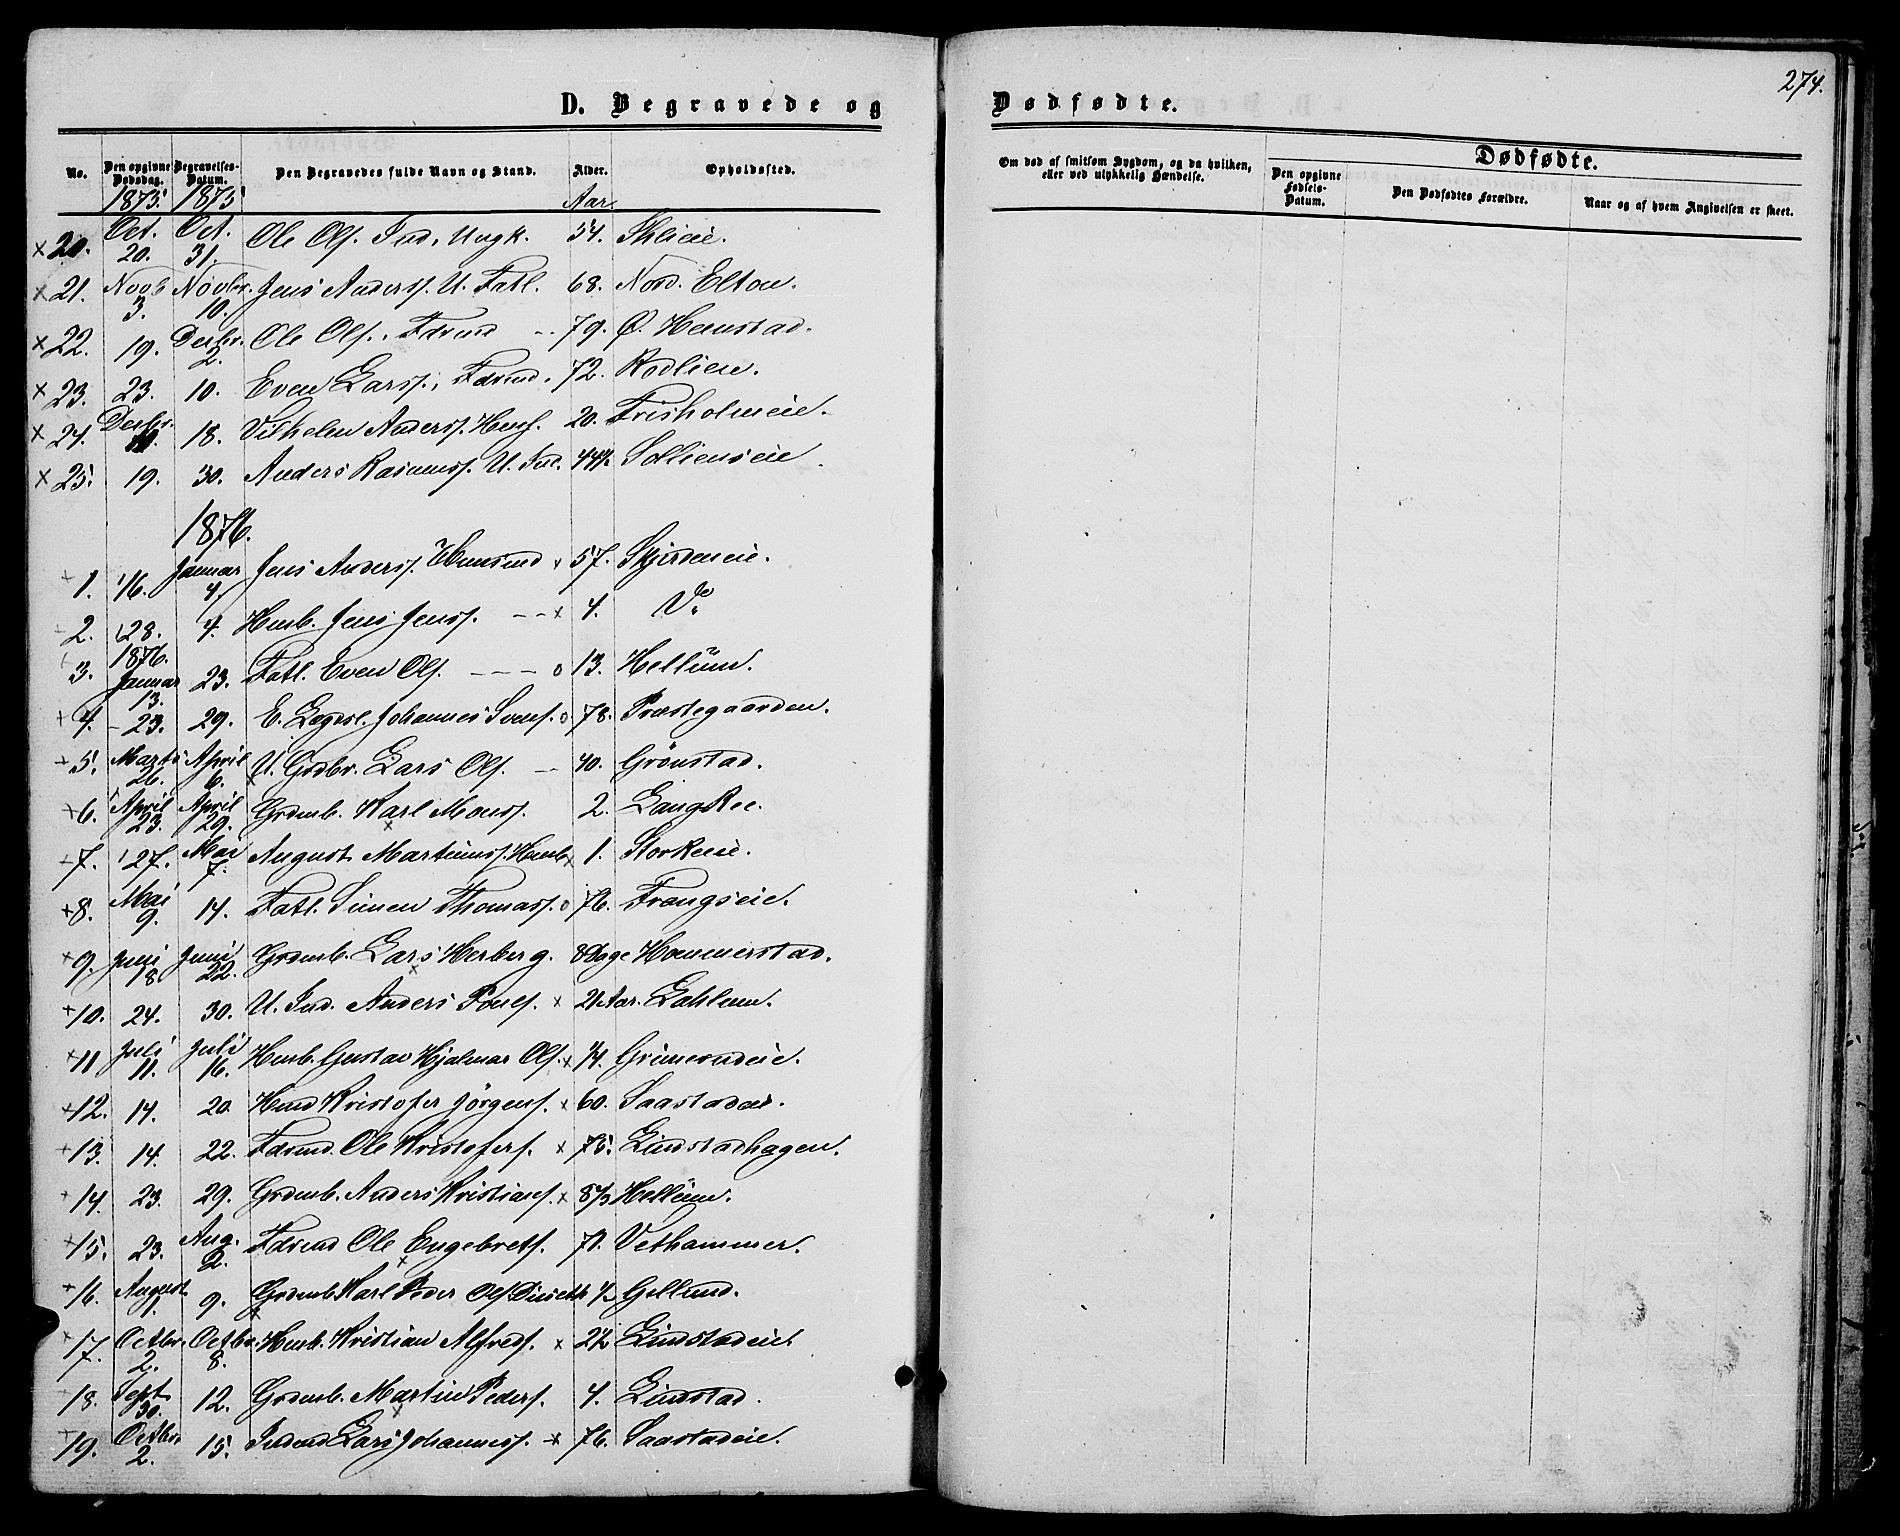 D. Begravede og
No. Den opgivne Dødsdag. Begravelses-Datum. Den Begravedes fulde Navn og Stand. Alder. Opholdssted.
1875. 1875 Aar.
20. Oct. 20. Oct. 31. Ole Ols. Ind. Ungk. 54. Sklieie.
21. Novb 3. Novbr. 10. Jens Anderss. U. Fatl. 68. Nord. Elton.
22. 19. Decbr. 2. Ole Ols. Fdrmd 79. Ø. Hemstad.
23. 23. 10. Even Larss. Fdrmd. 72. Rodlien.
24. Decbr. 18. Vilhelm Anderss. 20. Frisholmeie.
25. 19. 30. Anders Rasmuss. U. Ind. 44½ Sollienseie
1876.
1. 16. Januar 4. Jens Anderss. Husmd 57. Skjerdeneie.
2. 28. 4. Husb. Jens Jenss. 4. Do
3. 1876. Januar 13. 23. Fatl. Even Ols. 13. Hellüm.
4. 23. 29. E. Lægdsl. Johannes Svens. 78. Præstegaarden.
5. Marts 26. April 6. U. Grdbr. Lars Ols. 40. Grönstad.
6. April 23. April 29. Grdmb. Karl Monss. 2. LangRee.
7. 27. Mai 7. August Martinuss. Husb. 1. Storkeeie.
8. Mai 9. 14. Fatl. Simen Thomass. 76. Frangseie.
9. Juni 18 Juni 22. Grdmb. Lars Herberg. 8 Dage Hommerstad.
10. 24. 30. U. Ind. Anders Pouls. 21 Aar. Lahlum.
11 Juli 11. Juli 16. Husb. Gustav Hjalmar Ols. ¼. Grimerudeie.
12. 14. 20. Husmd Kristofer Jörgens. 60. Saastadeie.
13. 14. 22. Fdrmd. Ole Kristofers. 75. Lindstadhagen.
14. 23. 29. Grdmb. Anders Kristians. 8/3 Hellüm.
15. 23. Aug. 2. Fdrmd Ole Engebrets. 71. Vethammer.
16. August 1. 9. Grdmb. Karl Peder Ols. Gillund.
17. Octbr. 2. Octbr. 8. Husb. Kristian Alfreds. 2½ Lindstadeie
18. Sept 30. 12. Grdmb. Martin Peders. 4. Lindstad.
19. Octbr 2. 15. Indmd Lars Johanness. 76. Saastadeie.
274.
Dødfødte.
Om død af smitsom Sygdom, og da hvilken, eller ved ulykkelig Hændelse.
Dødfødte.
Den opgivne Fødsels-Datum. Den Dødfødtes Forældre. Naar og af hvem Angivelsen er skeet.